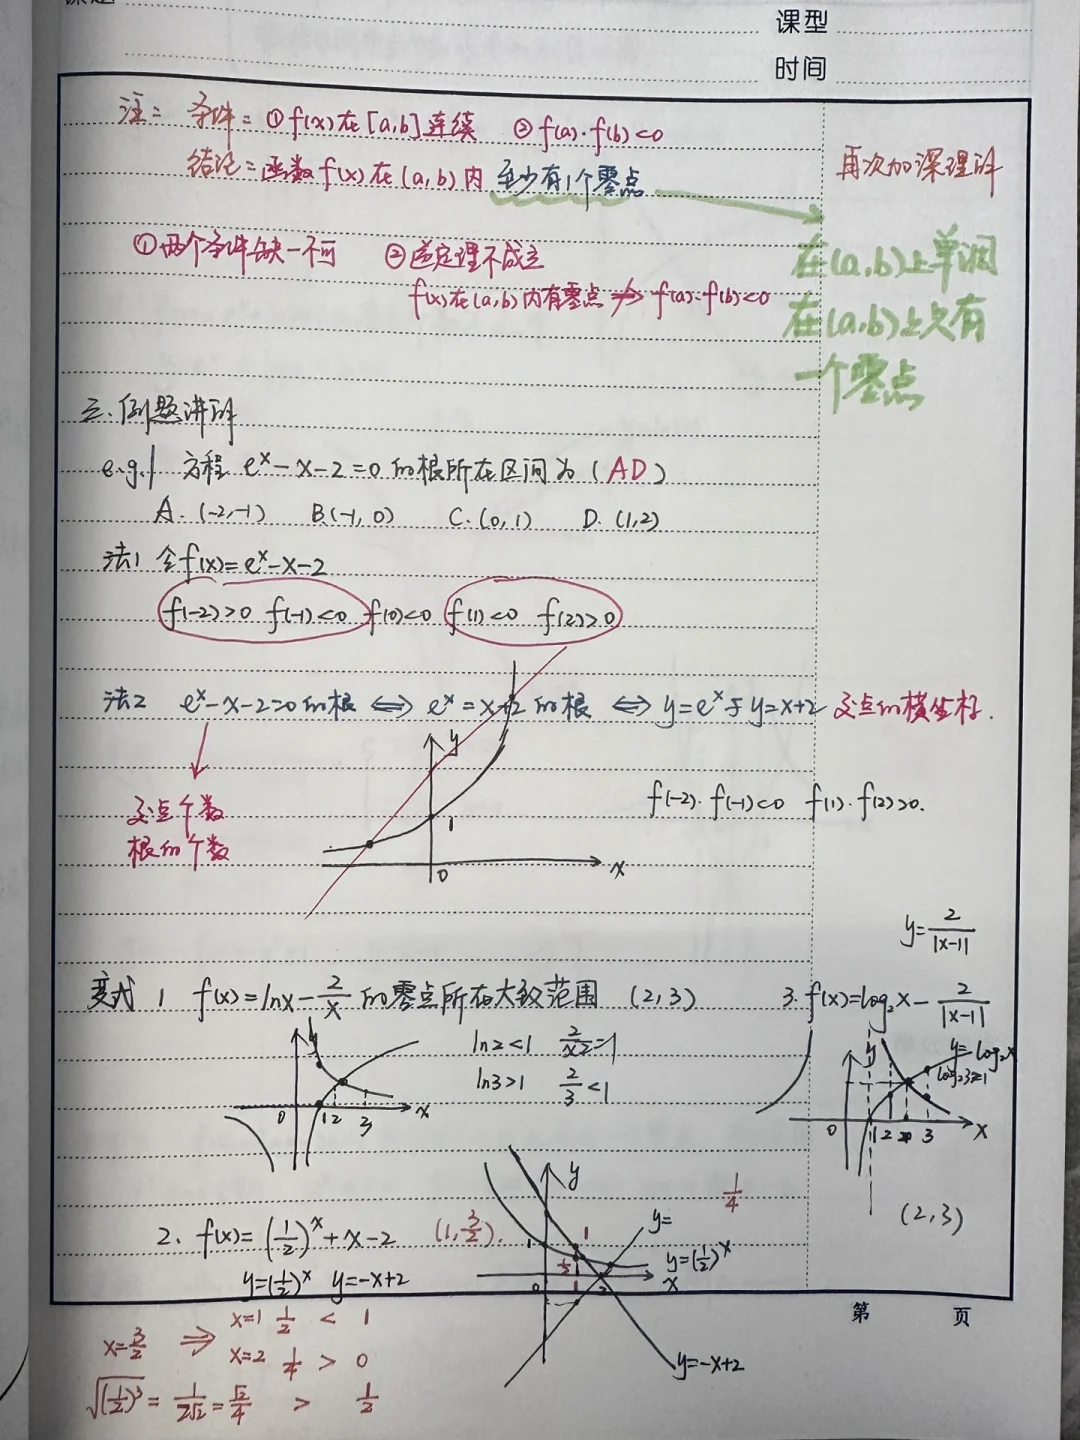 课型
时间
注：条件：① f(x)在[a,b]连续 ② f(a)·f(b)<0
结论：函数f(x)在(a,b)内 至少有1个零点
再次加深理解
① 两个条件缺一不可 ② 逆定理不成立
f(x)在(a,b)内有零点 ⇏ f(a)·f(b)<0
在(a,b)上单调
在(a,b)上只有
一个零点
三.例题讲解
e.g.1 方程 eˣ-x-2=0 的根所在区间为 (AD)
A. (-2,-1) B.(-1,0) C.(0,1) D.(1,2)
法1 令f(x)=eˣ-x-2
f(-2)>0 f(-1)<0 f(0)<0 f(1)<0 f(2)>0
法2 eˣ-x-2=0的根 ⟺ eˣ=x+2的根 ⟺ y=eˣ与y=x+2 交点的横坐标.
交点个数
根的个数
y
1
0
x
f(-2)·f(-1)<0 f(1)·f(2)>0.
y=2/|x-1|
变式 1 f(x)=lnx-2/x 的零点所在大致范围 (2,3)
ln2<1 2/2=1
ln3>1 2/3<1
y
0 1 2 3 x
3. f(x)=log₂x-2/|x-1|
y
y=log₂x
log₂3>1
0 1 2 3 x
(2,3)
2. f(x)=(1/2)ˣ+x-2 (1,3/2).
y=(1/2)ˣ y=-x+2
y
1/4
y=
1
1
y=(1/2)ˣ
1/2
0 1 2 x
y=-x+2
第 页
x=3/2 ⇒ x=1 1/2 < 1
x=2 1/4 > 0
√(1/2)³=1/2√2=√2/4 > 1/2